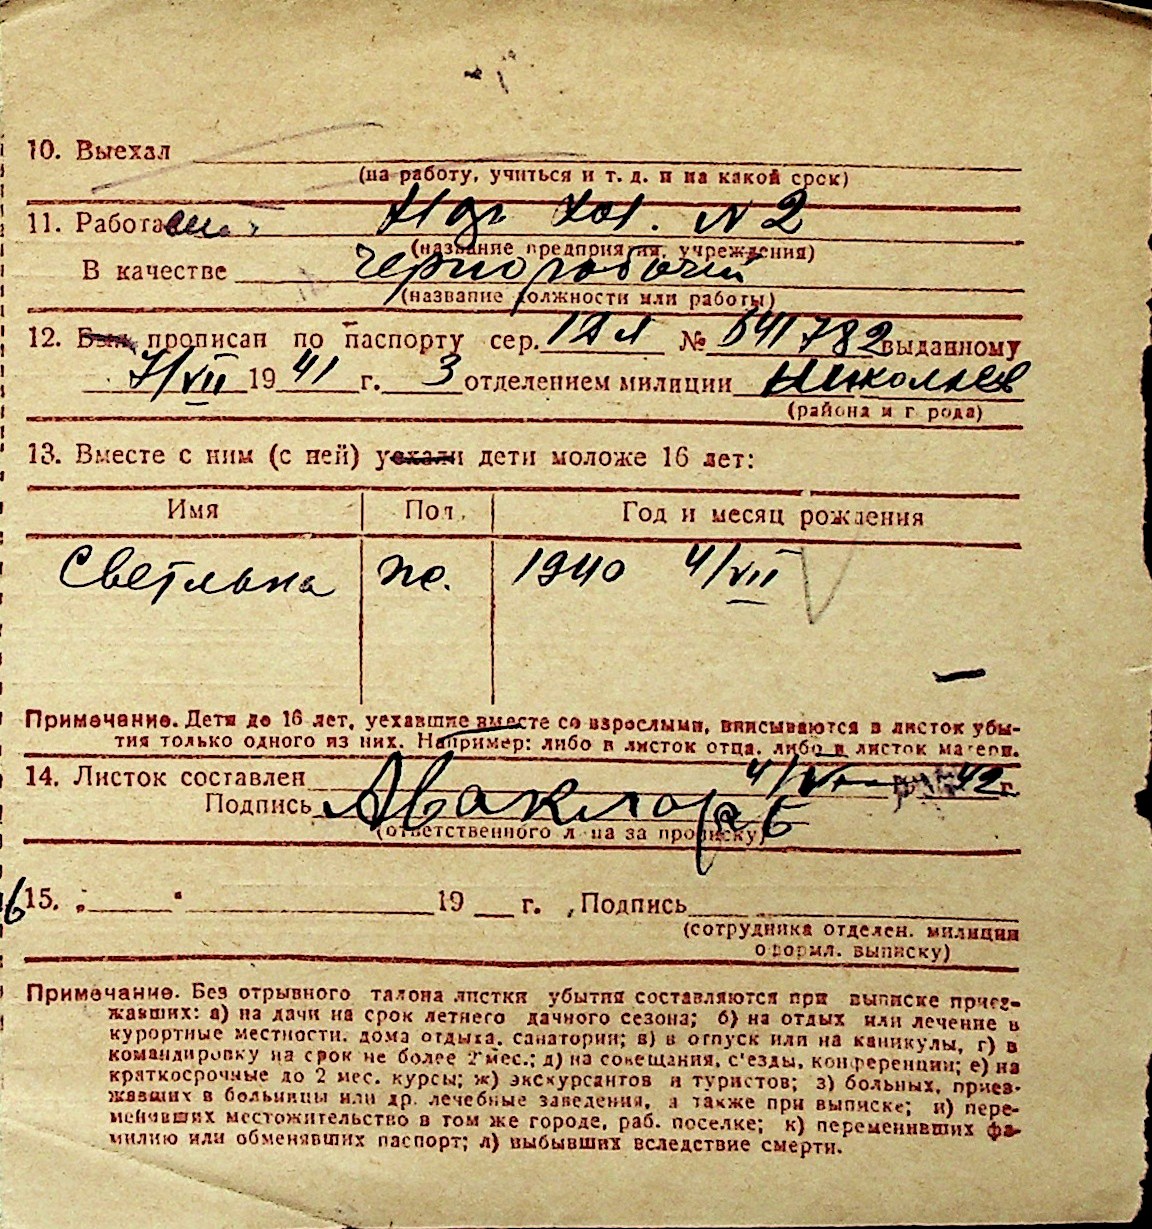 10. Выехал
(на работу, учиться и т. д. и на какой срок)
11. Работа № 2
(название предприятия, учреждения)
В качестве чернорабочий
(название должности или работы)
12. Был прописан по паспорту сер. № 541782 выданному
7/VII 1941 г. 3 отделением милиции Николаев
(района и города)
13. Вместе с ним (с ней) уехали дети моложе 16 лет:
Имя Пол. Год и месяц рождения
Светлана ж. 1940 4/VII
Примечание. Дети до 16 лет, уехавшие вместе со взрослыми, вписываются в листок убы-
тия только одного из них. Например: либо в листок отца, либо в листок матери.
14. Листок составлен 42 г.
Подпись
(ответственного лица за прописку)
15. „ " 19 г. Подпись
(сотрудника отделен. милиции
оформл. выписку)
Примечание. Без отрывного талона листки убытия составляются при выписке приез-
жавших: а) на дачи на срок летнего дачного сезона; б) на отдых или лечение в
курортные местности, дома отдыха, санатории; в) в отпуск или на каникулы, г) в
командировку на срок не более 2 мес.; д) на совещания, с'езды, конференции; е) на
краткосрочные до 2 мес. курсы; ж) экскурсантов и туристов; з) больных, приез-
жавших в больницы или др. лечебные заведения, а также при выписке; и) пере-
менивших местожительство в том же городе, раб. поселке; к) переменивших фа-
милию или обменявших паспорт; л) выбывших вследствие смерти.